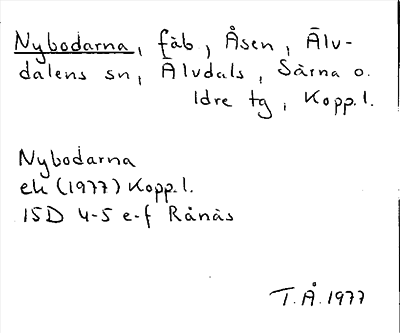 Nybodarna, fäb., Åsen, Älv-
dalens sn, Älvdals, Särna o.
Idre tg, Kopp.l.
Nybodarna
ek (1977) Kopp.l.
15D 4-5 e-f Rånäs
T.Å. 1977